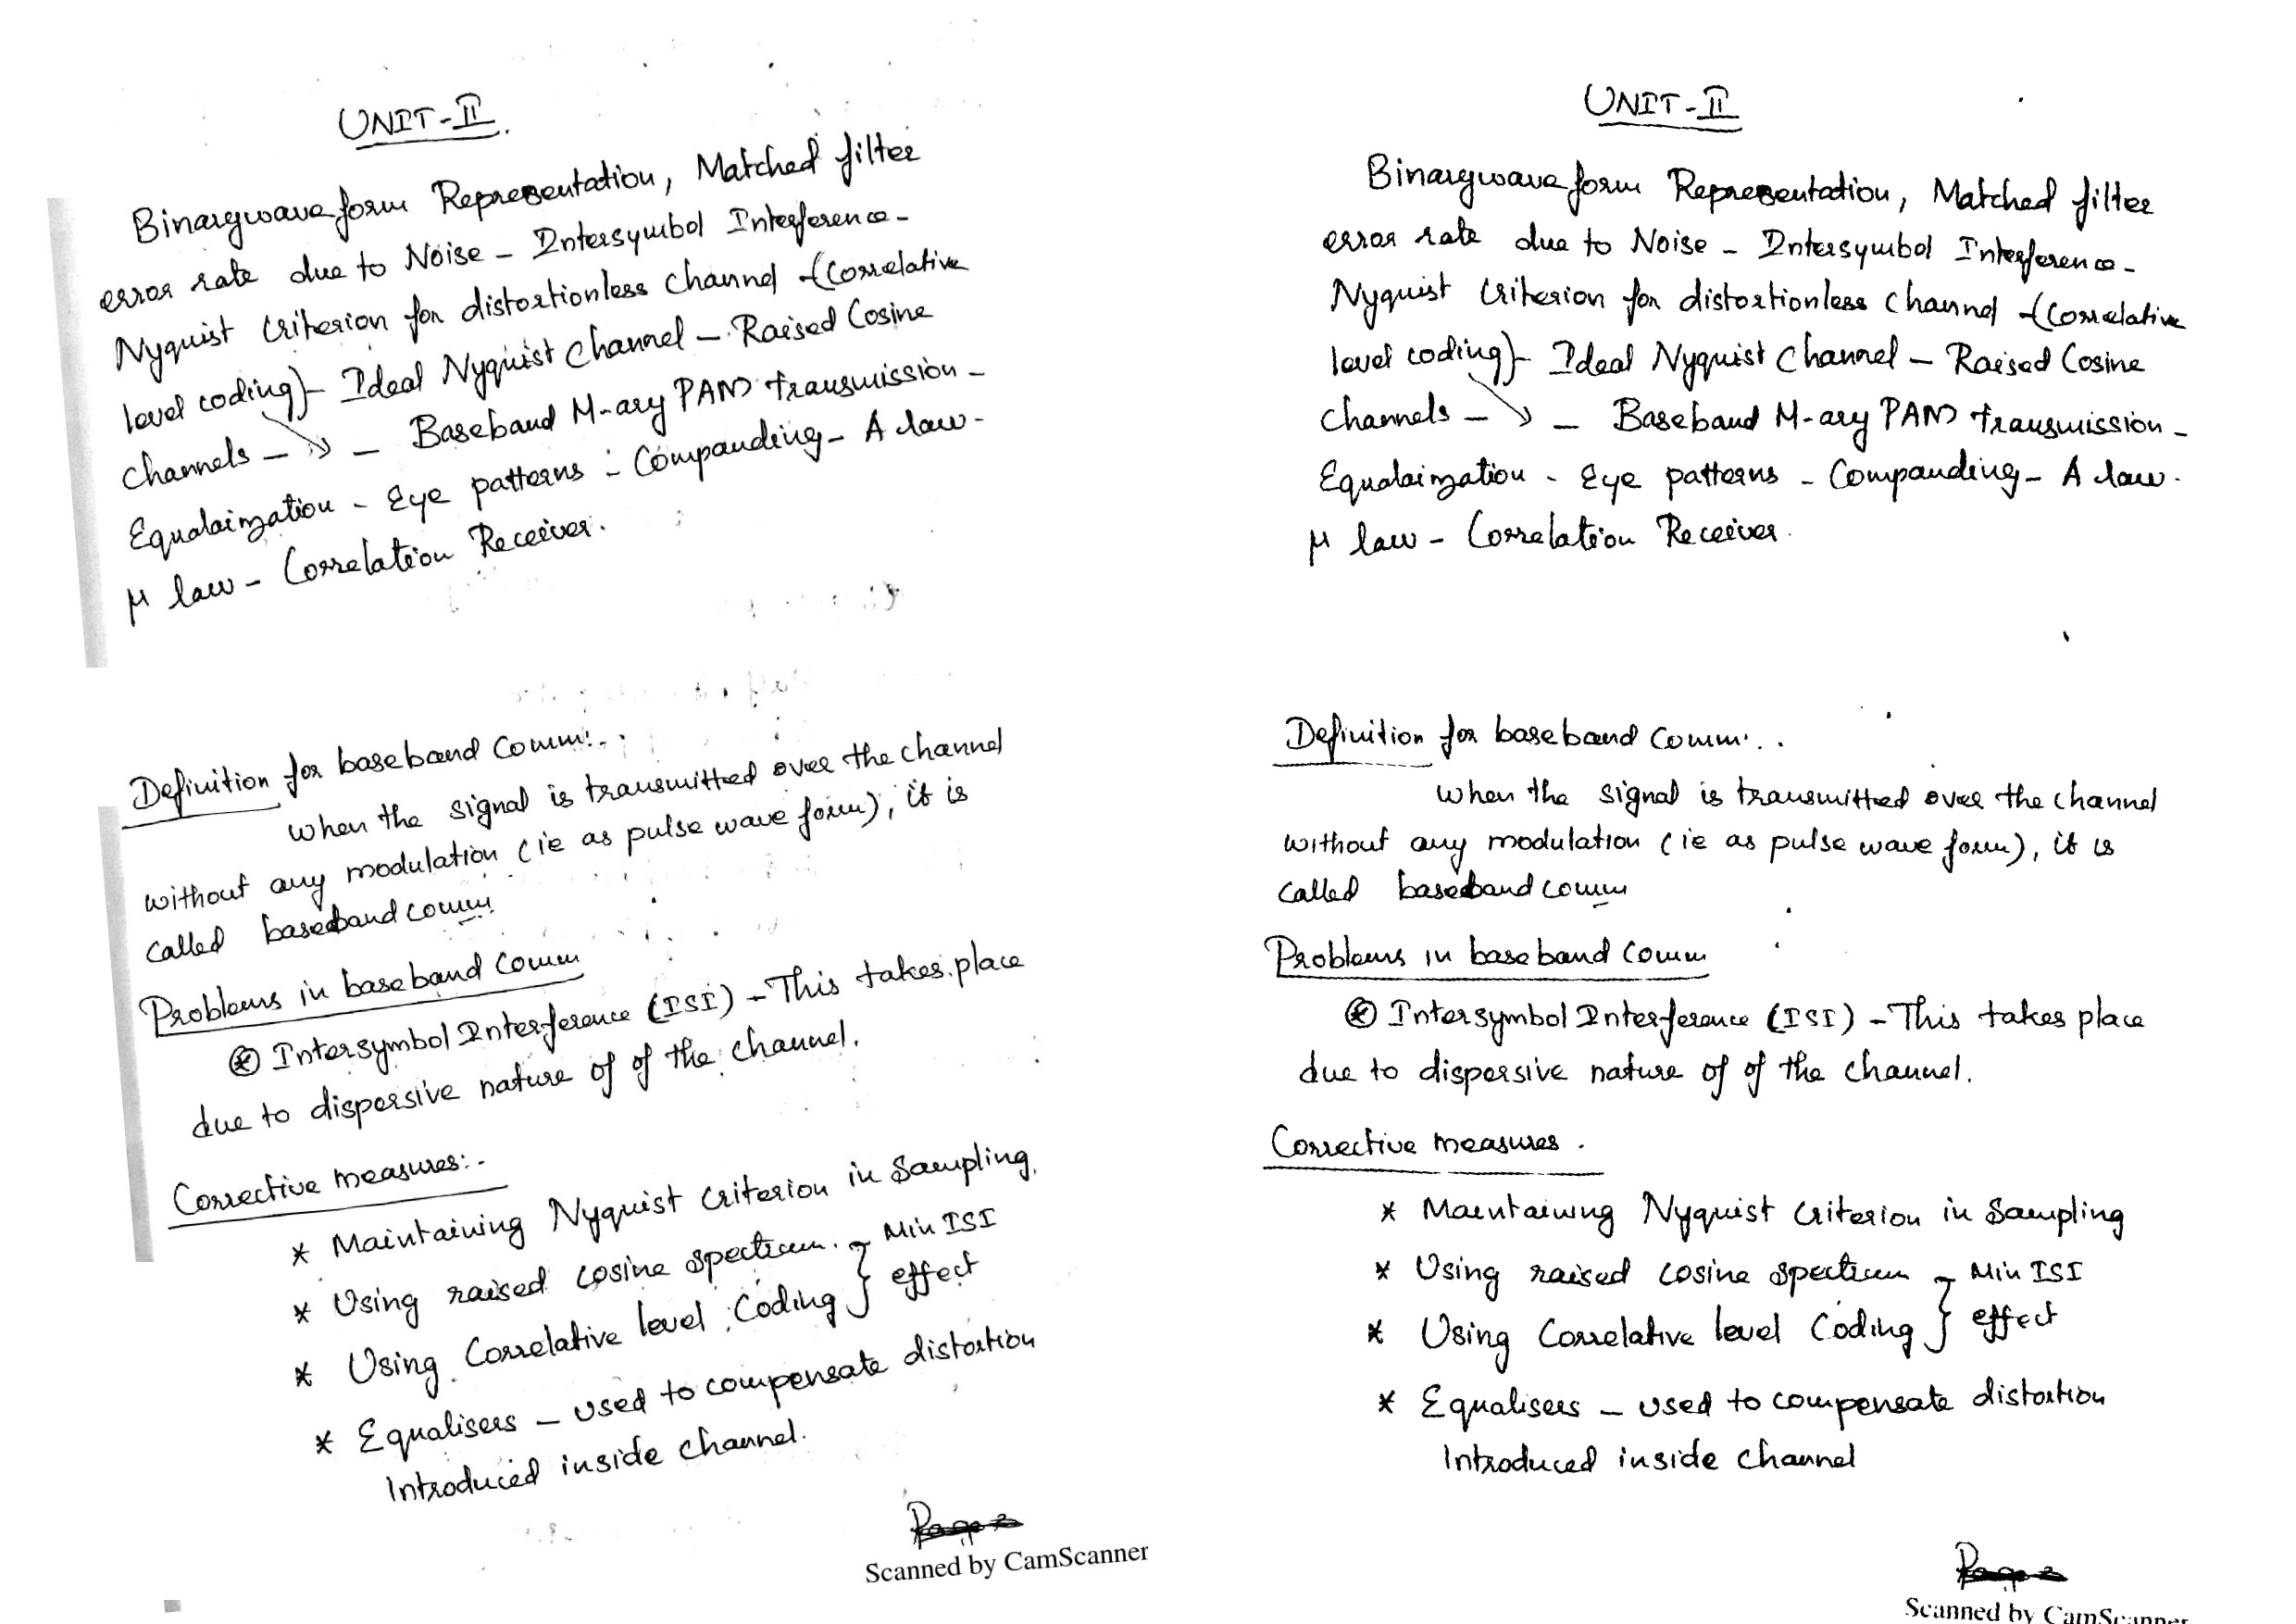 UNIT-II.
Binarywaveform Representation, Matched filter
error rate due to Noise - Intersymbol Interference-
Nyquist Criterion for distortionless channel -(Correlative
level coding)- Ideal Nyquist Channel - Raised Cosine
channels - → - Baseband M-ary PAM transmission -
Equalaization - Eye patterns - Companding - A law -
μ law - Correlation Receiver.
Definition for baseband Comm:-.
When the signal is transmitted over the channel
without any modulation (ie as pulse wave form), it is
called baseband comm.
Problems in baseband Comm
* Intersymbol Interference (ISI) - This takes place
due to dispersive nature of of the channel.
Corrective measures:-
* Maintaining Nyquist Criterion in Sampling.
* Using raised cosine spectrum. } Min ISI
* Using Correlative level Coding } effect
* Equalisers - used to compensate distortion
Introduced inside channel.
Scanned by CamScanner
UNIT-II
Binarywaveform Representation, Matched filter
error rate due to Noise - Intersymbol Interference-
Nyquist Criterion for distortionless channel -(Correlative
level coding)- Ideal Nyquist Channel - Raised Cosine
channels - → - Baseband M-ary PAM transmission -
Equalaization - Eye patterns - Companding - A law -
μ law - Correlation Receiver.
Definition for baseband Comm'..
When the signal is transmitted over the channel
without any modulation (ie as pulse wave form), it is
called baseband comm
Problems in baseband Comm
* Intersymbol Interference (ISI) - This takes place
due to dispersive nature of of the channel.
Corrective measures.
* Maintaining Nyquist Criterion in Sampling
* Using raised cosine spectrum } Min ISI
* Using Correlative level Coding } effect
* Equalisers - used to compensate distortion
Introduced inside channel
Scanned by CamScanner